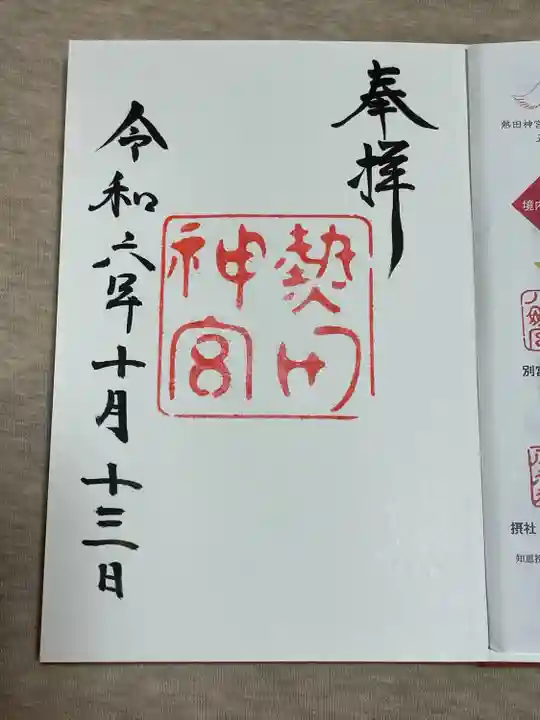 奉拝
熱田
神宮
令和六年十月十三日
熱田神宮
境内
別宮
摂社